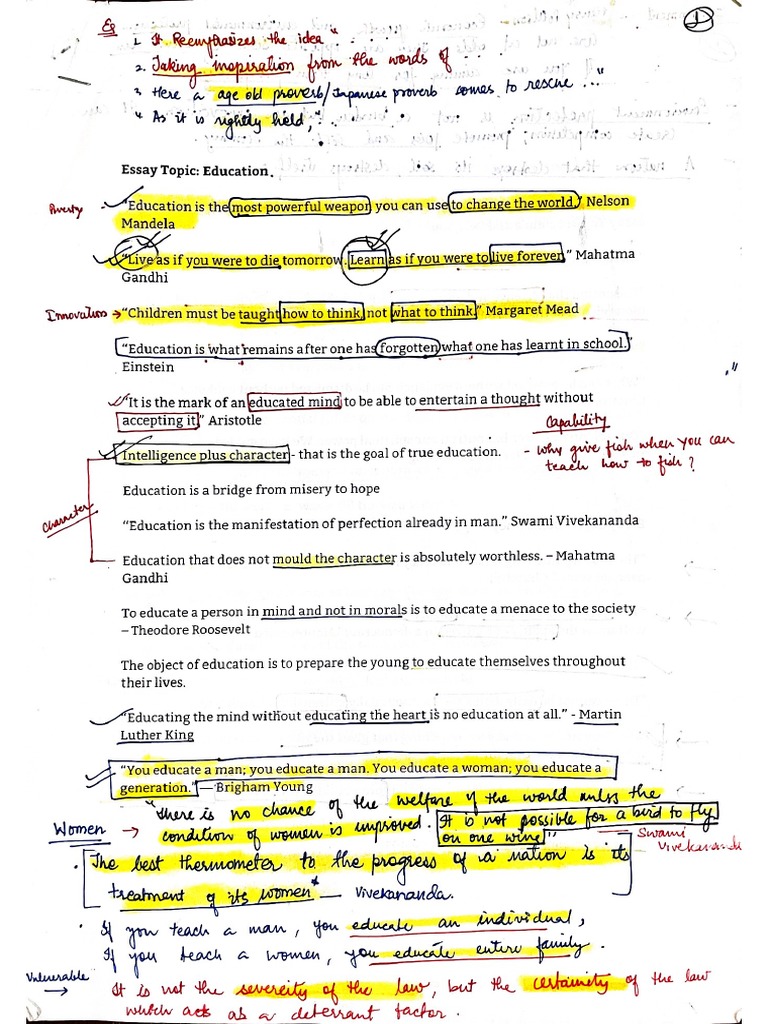 Eg
1
1. It Reemphasizes the idea"
2. Taking inspiration from the words of
3 Here a age old proverb/Japanese proverb comes to rescue ..."
4 As it is rightly held,"
Essay Topic: Education
Poverty
"Education is the most powerful weapon you can use to change the world." Nelson
Mandela
"Live as if you were to die tomorrow. Learn as if you were to live forever." Mahatma
Gandhi
Innovations → "Children must be taught how to think, not what to think." Margaret Mead
"Education is what remains after one has forgotten what one has learnt in school."
Einstein
"It is the mark of an educated mind to be able to entertain a thought without
accepting it." Aristotle
Capability
Intelligence plus character - that is the goal of true education.
- Why give fish when you can
teach how to fish?
Education is a bridge from misery to hope
Character
"Education is the manifestation of perfection already in man." Swami Vivekananda
Education that does not mould the character is absolutely worthless. – Mahatma
Gandhi
To educate a person in mind and not in morals is to educate a menace to the society
– Theodore Roosevelt
The object of education is to prepare the young to educate themselves throughout
their lives.
"Educating the mind without educating the heart is no education at all." - Martin
Luther King
"You educate a man; you educate a man. You educate a woman; you educate a
generation." — Brigham Young
Women → "There is no chance of the welfare of the world unless the
condition of women is improved. It is not possible for a bird to fly
on one wing"
Swami
Vivekananda
The best thermometer to the progress of a nation is its
treatment of its women" — Vivekananda.
If you teach a man, you educate an individual,
If you teach a women, you educate entire family.
Vulnerable →
It is not the severity of the law, but the certainity of the law
which acts as a deterrant factor.